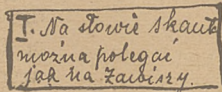 I. Na słowie skaut
można polegać
jak na Zawiszy.